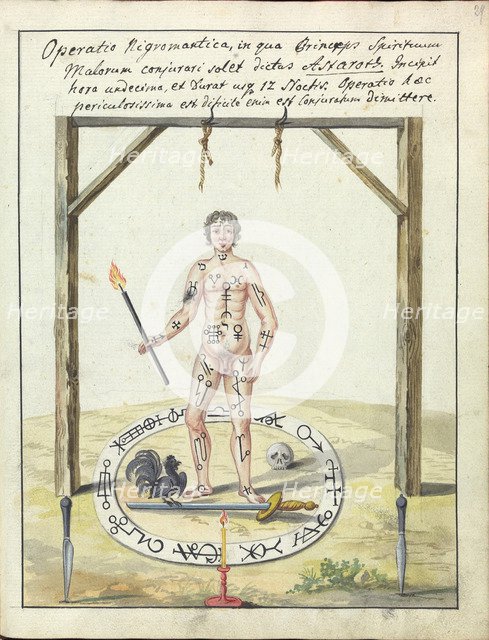 29
Operatio Nigromantica, in qua Princeps Spirituum
Malorum conjurari solet dictus Astarot. Incipit
hora undecima, et Durat usq 12 Noctis. Operatio haec
periculosissima est dificile enim est Conjuratum dimittere.
Heritage
Heritage
Heritage
Heritage
Heritage
Heritage
Heritage
Heritage